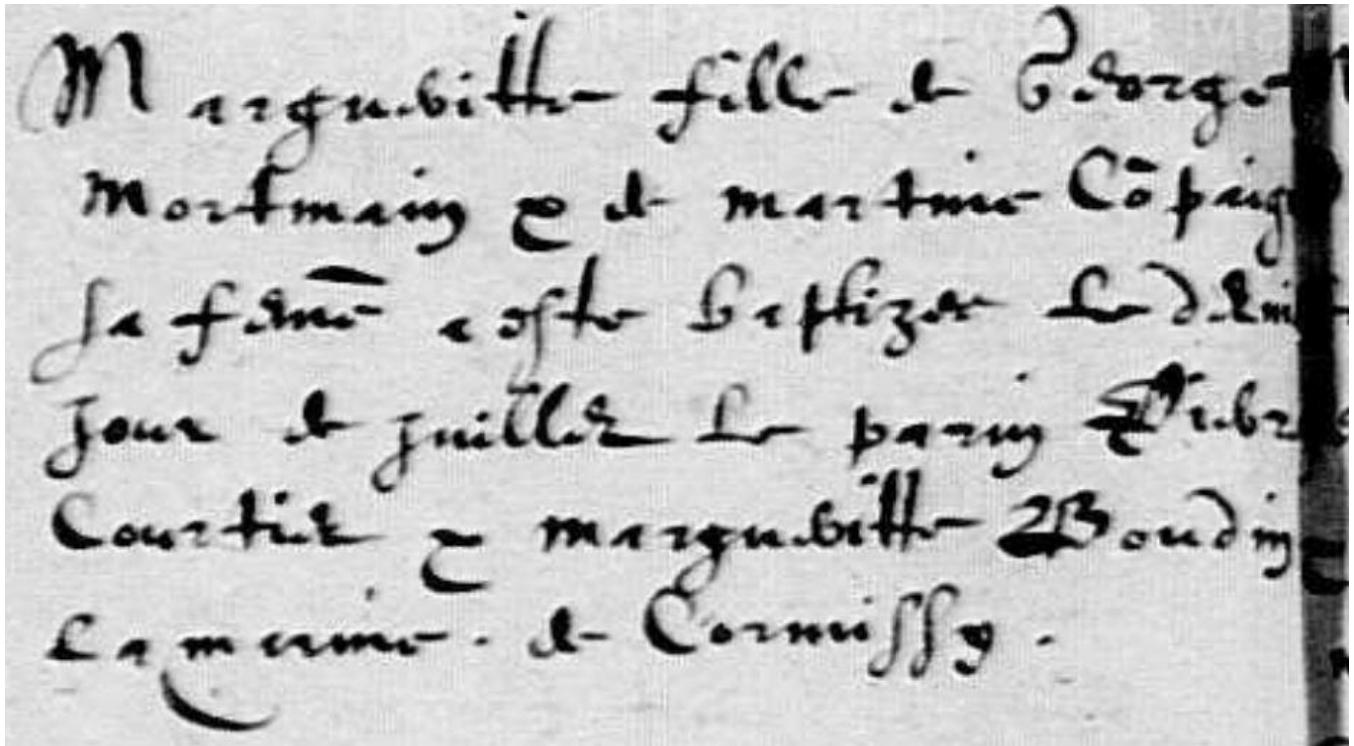 Margueritte fille de George
Mortmain & de martine Cõpaig
sa feme̅ a este baptizee le
Jour de juillet le parin
Courtier & margueritte Boudin
La marine . de Cormissy .